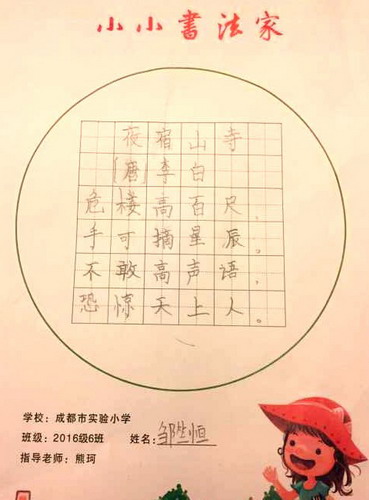 小小書法家
夜宿山寺
[唐]李白
危楼高百尺，
手可摘星辰。
不敢高声语，
恐惊天上人。
学校：成都市实验小学
班级：2016级6班 姓名：邹竺恒
指导老师：熊珂